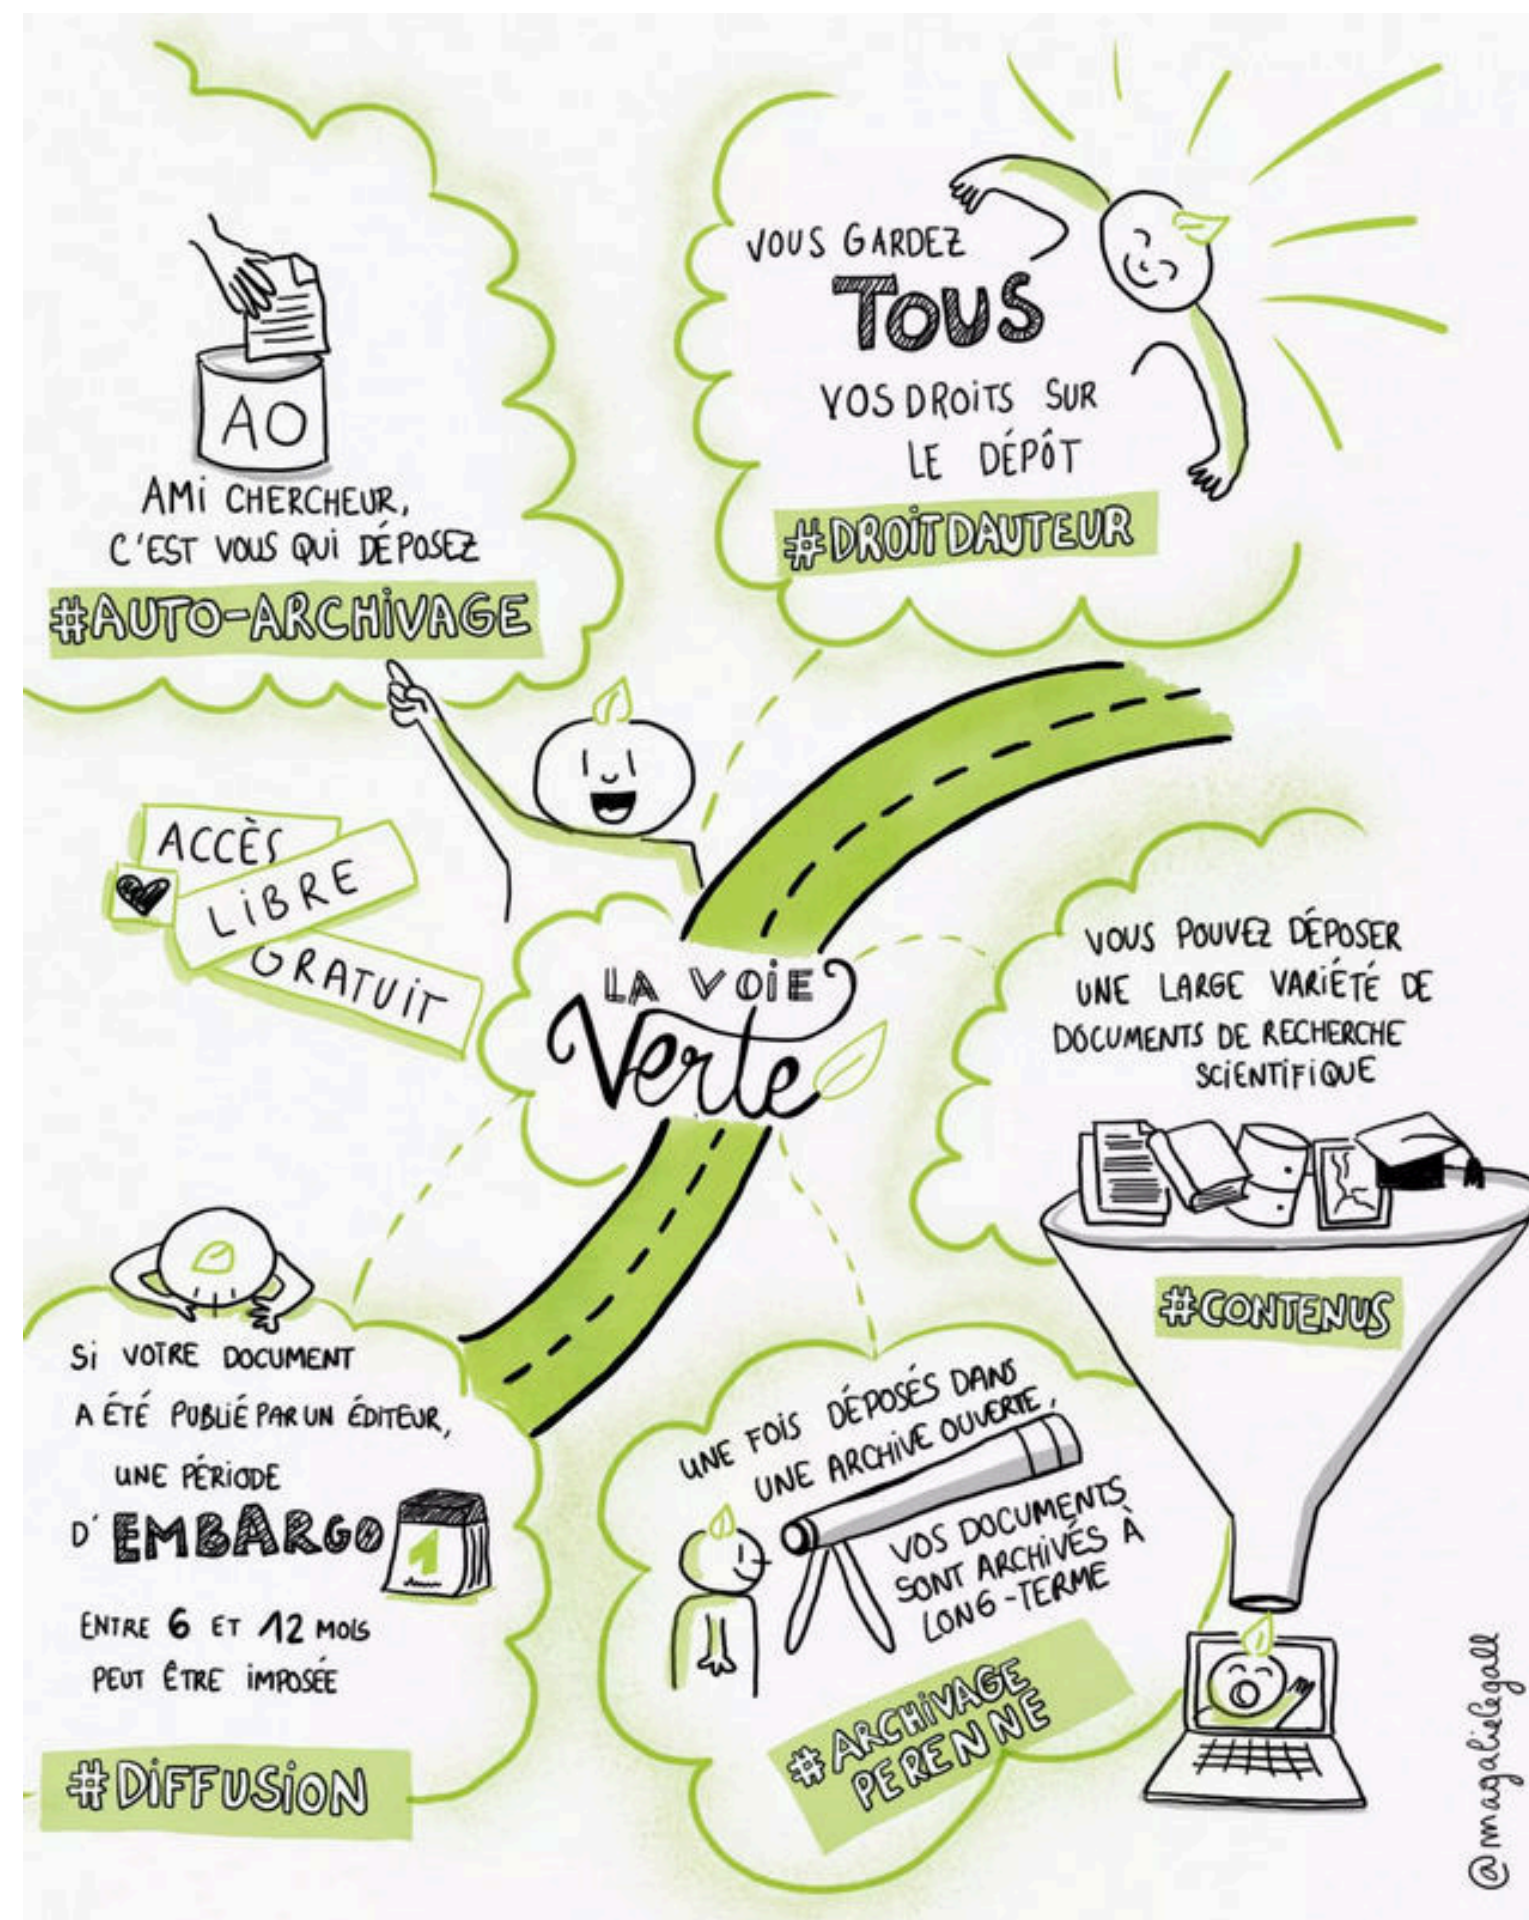 AO
AMI CHERCHEUR,
C'EST VOUS QUI DÉPOSEZ
#AUTO-ARCHIVAGE
VOUS GARDEZ
TOUS
VOS DROITS SUR
LE DÉPÔT
#DROITDAUTEUR
ACCÈS
LIBRE
GRATUIT
LA VOIE
Verte
VOUS POUVEZ DÉPOSER
UNE LARGE VARIÉTÉ DE
DOCUMENTS DE RECHERCHE
SCIENTIFIQUE
#CONTENUS
SI VOTRE DOCUMENT
A ÉTÉ PUBLIÉ PAR UN ÉDITEUR,
UNE PÉRIODE
D'EMBARGO
1
ENTRE 6 ET 12 MOIS
PEUT ÊTRE IMPOSÉE
#DIFFUSION
UNE FOIS DÉPOSÉS DANS
UNE ARCHIVE OUVERTE,
VOS DOCUMENTS
SONT ARCHIVÉS À
LONG-TERME
#ARCHIVAGE
PERENNE
@magalielegall